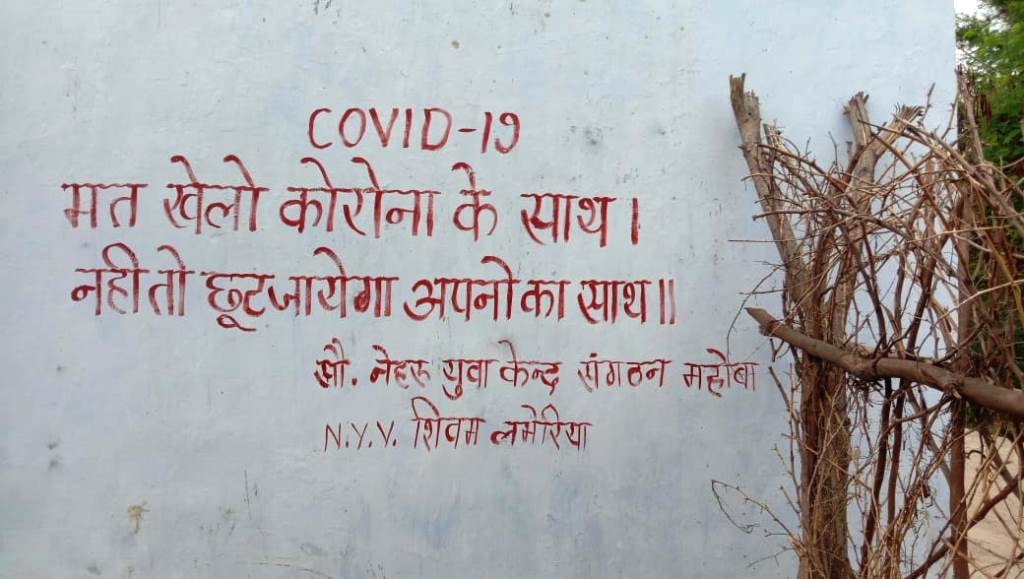 COVID-19
मत खेलो कोरोना के साथ।
नही तो छूट जायेगा अपनो का साथ॥
सौ. नेहरू युवा केन्द्र संगठन महोबा
N.Y.V. शिवम लमेरिया